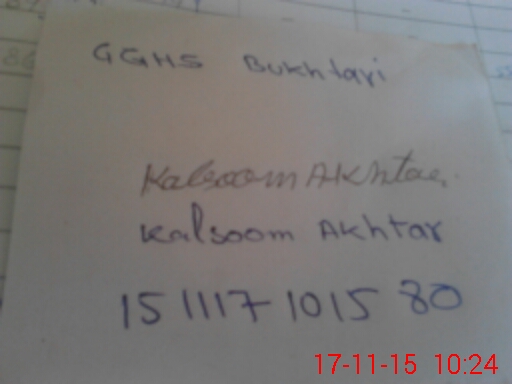 GGHS Bukhtari
Kalsoom Akhtar
Kalsoom Akhtar
151117 1015 80
17-11-15 10:24